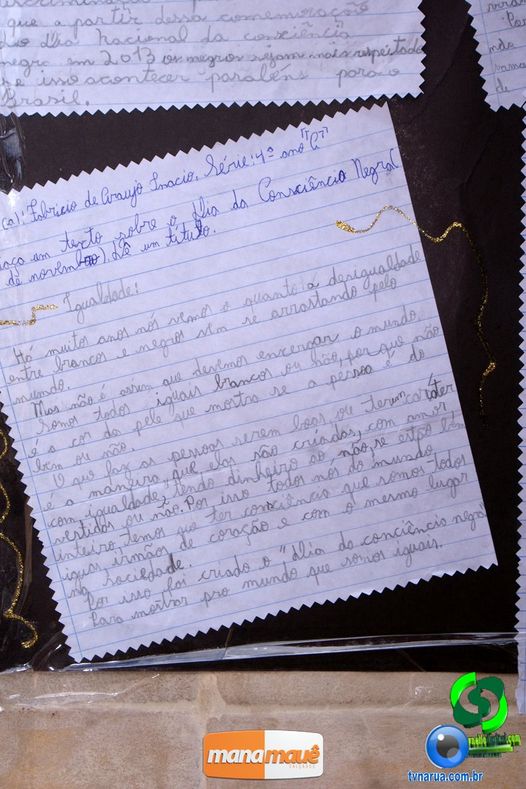 que a partir dessa comemoração
do dia Nacional da consciência
negra em 2013 os negros sejam mais respeitado
e isso acontecer parabens para o
Brasil.
(a): Fabricio de Araujo Inacio. Série: 4º ano "C"
aça um texto sobre o dia da Consciência Negra(
de novembro). Dê um título.
Igualdade!
Há muitos anos nós vemos o quanto a desigualdade
entre brancos e negros vem se arrastando pelo
mundo.
Mas não é assim que devemos enxergar o mundo.
Somos todos iguais brancos ou não, por que não
é a cor da pele que mostra se a pessoa é do
bem ou não.
O que faz as pessoas serem boas ou terum caráter
é a maneira que elas são criadas, com amor
com igualdade, tendo dinheiro ou não, se estão bem
vestidos ou não. Por isso todos nós do mundo
inteiro temos que ter consciência que somos todos
iguais, irmãos de coração e com o mesmo lugar
na sociedade.
Por isso foi criado o "dia da conciência negra"
Para mostrar pro mundo que somos iguais.
manamauê
CALÇADOS
tvnarua.com.br